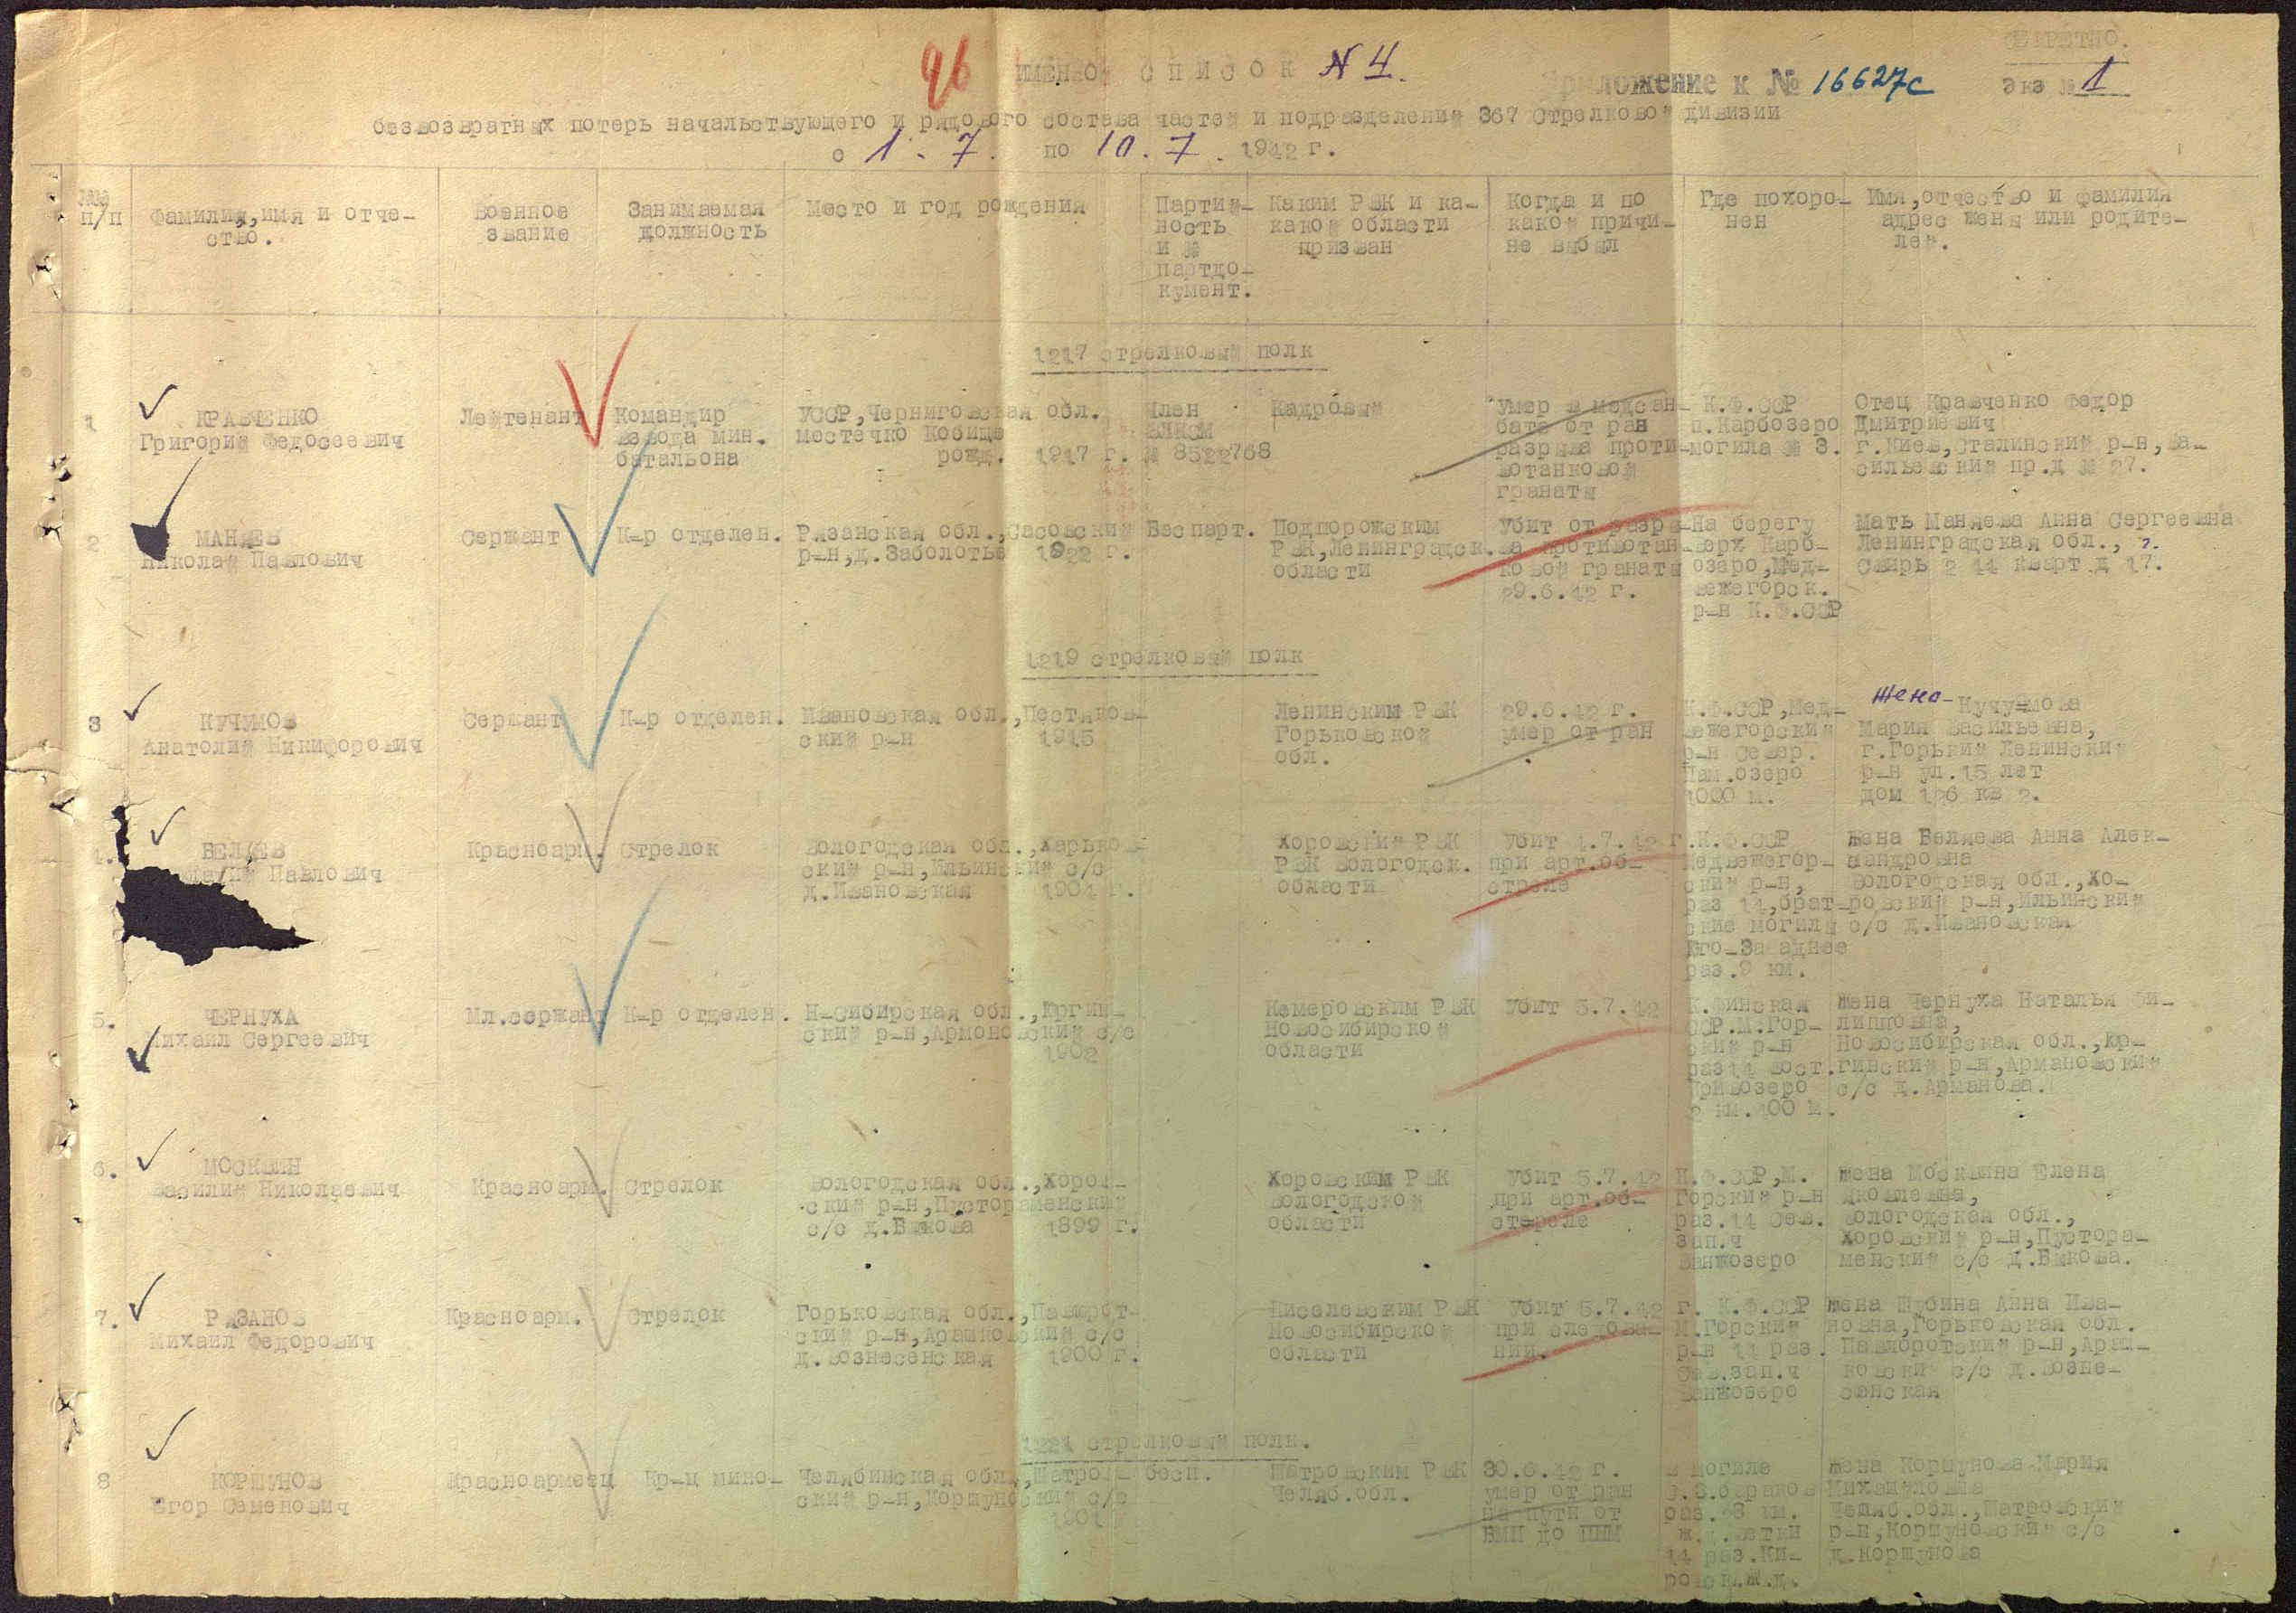 СЕКРЕТНО.
96 ИМЕННОЙ СПИСОК № 4.
Приложение к № 16627с Экз № 1
безвозвратных потерь начальствующего и рядового состава частей и подразделений 367 Стрелковой дивизии
с 1.7. по 10.7. 1942 г.
№№ п/п
Фамилия, имя и отче-
ство.
Военное
звание
Занимаемая
должность
Место и год рождения
Партий-
ность
и №
партдо-
кумент.
Каким РВК и ка-
какой области
призван
Когда и по
какой причи-
не выбыл
Где похоро-
нен
Имя, отчество и фамилия
адрес жены или родите-
лей.
1217 стрелковый полк
1
КРАВЧЕНКО
Григорий Федосеевич
Лейтенант
Командир
взвода мин.
батальона
УССР, Черниговская обл.
местечко Кобище
рожд. 1917 г.
Член
ВЛКСМ
№ 8522768
Кадровый
Умер в медсан-
бате от ран
разрыва проти-
вотанковой
гранаты
К.Ф.ССР
п.Карбозеро
могила № 3.
Отец Кравченко Федор
Дмитриевич
г.Киев, Сталинский р-н, Ва-
сильевский пр.д № 27.
2
МАНЯЕВ
Николай Павлович
Сержант
К-р отделен.
Рязанская обл., Сасовский
р-н, д.Заболотье 1922 г.
Беспарт.
Подпорожским
РВК, Ленинградск.
области
Убит от разры-
ва противотан-
ковой гранаты
29.6.42 г.
На берегу
верх Карб-
озеро, Мед-
вежегорск.
р-н К.Ф.ССР
Мать Маняева Анна Сергеевна
Ленинградская обл., ?.
Свирь 2 44 кварт д 17.
1219 стрелковый полк
3
КУЧУМОВ
Анатолий Никифорович
Сержант
К-р отделен.
Ивановская обл., Пестяков-
ский р-н 1915
Ленинским РВК
Горьковской
обл.
29.6.42 г.
умер от ран
К.Ф.ССР, Мед-
вежегорский
р-н Север.
Лам.озеро
1000 м.
Жена - Кучумова
Мария Васильевна,
г.Горький Ленинский
р-н ул.15 лет
дом 126 кв 2.
4.
БЕЛЯЕВ
Павлович
Красноарм.
Стрелок
Вологодская обл., Харьков-
ский р-н, Ильинский с/с
д.Ивановская 1904 г.
Хоровский РВК
РВК Вологодск.
области
Убит 1.7.42 г.
при арт.об-
стреле
К.Ф.ССР
Медвежегор-
ский р-н,
раз 14, брат-
ские могилы
Юго-Западнее
раз.9 км.
Жена Беляева Анна Алек-
сандровна
Вологодская обл., Хо-
ровский р-н, Ильинский
с/с д.Ивановская
5.
ЧЕРНУХА
Михаил Сергеевич
Мл.сержант
К-р отделен.
Н-Сибирская обл., Юргин-
ский р-н, Армоновский с/с
1902
Кемеровским РВК
Новосибирской
области
Убит 3.7.42
К.Финская
ССР.М.Гор-
ский р-н
раз 14 вост.
Кривозеро
2 км.400 м.
Жена Чернуха Наталья Фи-
липповна,
Новосибирская обл., Юр-
гинский р-н, Армановский
с/с д.Арманова.
6.
МОСКВИН
Василий Николаевич
Красноарм.
Стрелок
Вологодская обл., Хоров-
ский р-н, Пустораменский
с/с д.Быкова 1899 г.
Хоровским РВК
Вологодской
области
Убит 3.7.42
при арт.об-
стереле
К.Ф.ССР, М.
Горский р-н
раз.14 Сев.
зап.ч
Ванжозеро
Жена Москвина Елена
Яковлевна,
Вологодская обл.,
Хоровский р-н, Пустора-
менский с/с д.Быкова.
7.
РЯЗАНОВ
Михаил Федорович
Красноарм.
Стрелок
Горьковская обл., Павлорот-
ский р-н, Арашковский с/с
д.Вознесенская 1900 г.
Киселевским РВК
Новосибирской
области
Убит 5.7.42 г.
при следова-
нии.
К.Ф.ССР
М.Горский
р-н 14 раз.
Сев.зап.ч
Ванжозеро
Жена Шубина Анна Ива-
новна, Горьковская обл.
Павлоротский р-н, Араш-
ковский с/с д.Возне-
сенская
1221 стрелковый полк.
8
КОРШУНОВ
Егор Семенович
Красноармеец
Кр-ц мино-
Челябинская обл., Шатров-
ский р-н, Коршуновский с/с
1901
бесп.
Шатровским РВК
Челяб.обл.
30.6.42 г.
умер от ран
на пути от
БМП до ППМ
в могиле
бараков
раз. 8 км.
ж.д.ветки
14 раз.Ки-
ровск.ж.д.
Жена Коршунова Мария
Михайловна
Челяб.обл., Шатровский
р-н, Коршуновский с/с
д.Коршунова